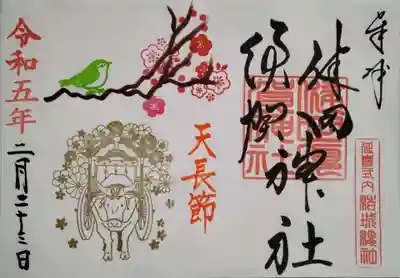 奉拝
延喜式内
健田神社
須賀神社
天長節
令和五年
二月二十三日